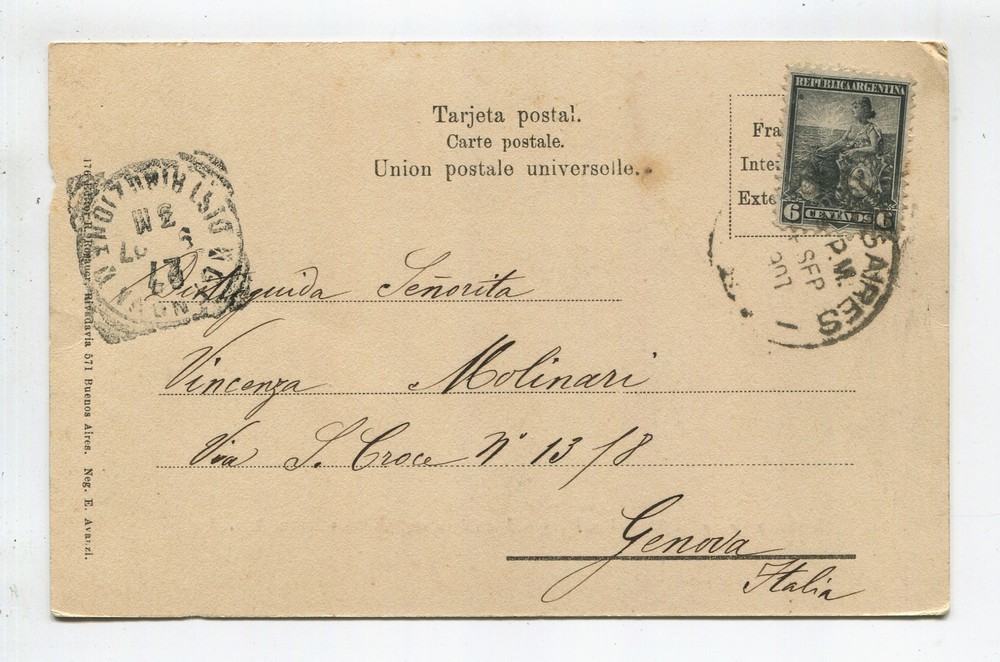 Tarjeta postal.
Carte postale.
Union postale universelle.
REPUBLICA ARGENTINA
6 CENTAVOS 6
Fra
Inte
Exte
S AIRES
P.M.
SEP
907
Distinguida Señorita
Vincenza Molinari
Via S. Croce N° 13/8
Genova
Italia
27
Rivadavia 571 Buenos Aires. Neg. E. Avanzi.